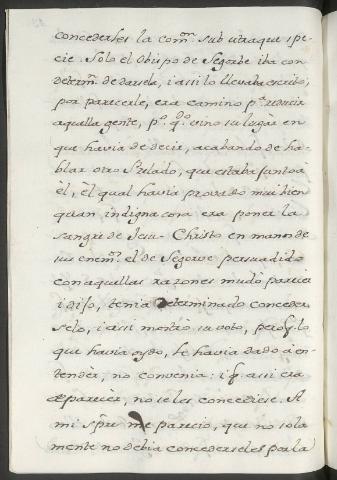 concederles la com.ⁿ sub utraque spe-
cie. Solo el Obispo de Segorbe iba con
determ.ⁿ de darsela, i assi lo llevaba escrito,
por parecerle, era camino p.ᵃ reducir
aquella gente, p.º q.ᵈº vino su lugar en
que havia de decir, acabando de ha-
blar otro Prelado, que estaba junto à
èl, èl qual havia provado mui bien
quan indigna cosa era poner la
sangre de Jesu-Christo en manos de
sus enem.ˢ el de Segorve persuadido
con aquellas razones mudò parecer
i dijo, tenia determinado conceder
selo, i assi mostrò su voto, pero q. lo
que havia oydo, le havia dado à en-
tender, no convenia: i q. assi era
de parecer, no se les concediese. A
mi s.ᵒʳ me parecio, que no sola
mente no debia concederseles por la